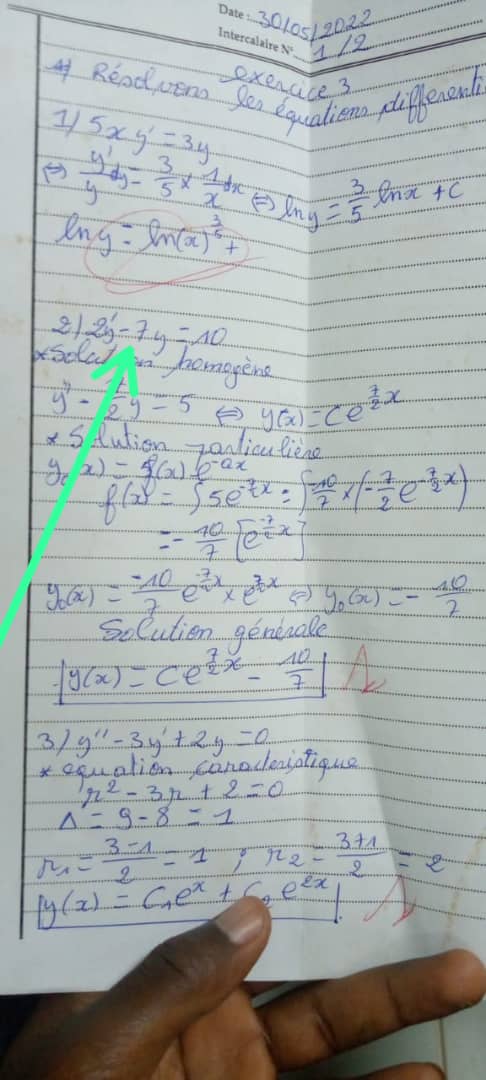 Date : 30/05/2022
Intercalaire N° 1/2
exercice 3
1) Résolvons les équations différenti
1) 5xy' = 3y
⇔ y'/y dy = 3/5 × 1/x dx ⇔ ln y = 3/5 ln x + C
ln y = ln(x)^{3/5} +
2) 2y' - 7y = 10
* Solution homogène
y' - 7/2 y = 5 ⇔ y(x) = C e^{7/2 x}
* Solution particulière
y₀(x) = f(x) e^{-ax}
f(x) = ∫ 5e^{-7/2 x} = ∫ -10/7 × (-7/2 e^{-7/2 x})
= - 10/7 [e^{-7/2 x}]
y₀(x) = -10/7 e^{-7/2 x} × e^{7/2 x} ⇔ y₀(x) = - 10/7
Solution générale
y(x) = C e^{7/2 x} - 10/7
3) y'' - 3y' + 2y = 0
* équation caractéristique
r² - 3r + 2 = 0
Δ = 9 - 8 = 1
r₁ = (3-1)/2 = 1 ; r₂ = (3+1)/2 = 2
y(x) = C₁e^x + C₂ e^{2x}